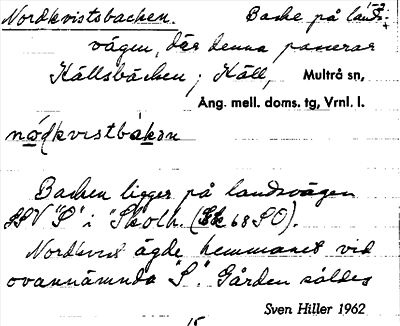 Nordkvistsbacken. Backe på lands-
vägen, där denna passerar
Källsbäcken; Käll, Multrå sn,
Ång. mell. doms. tg, Vrnl. l.
nọ́dkvistbakan
Backen ligger på landsvägen
SSV "S" i "Skolh. (Ek 68 SO).
Nordkvist ägde hemmanet vid
ovannämnda "S". Gården såldes
Sven Hiller 1962
15